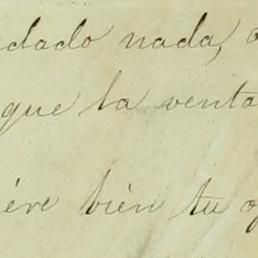 dado nada,
que la venta
ére bién tu